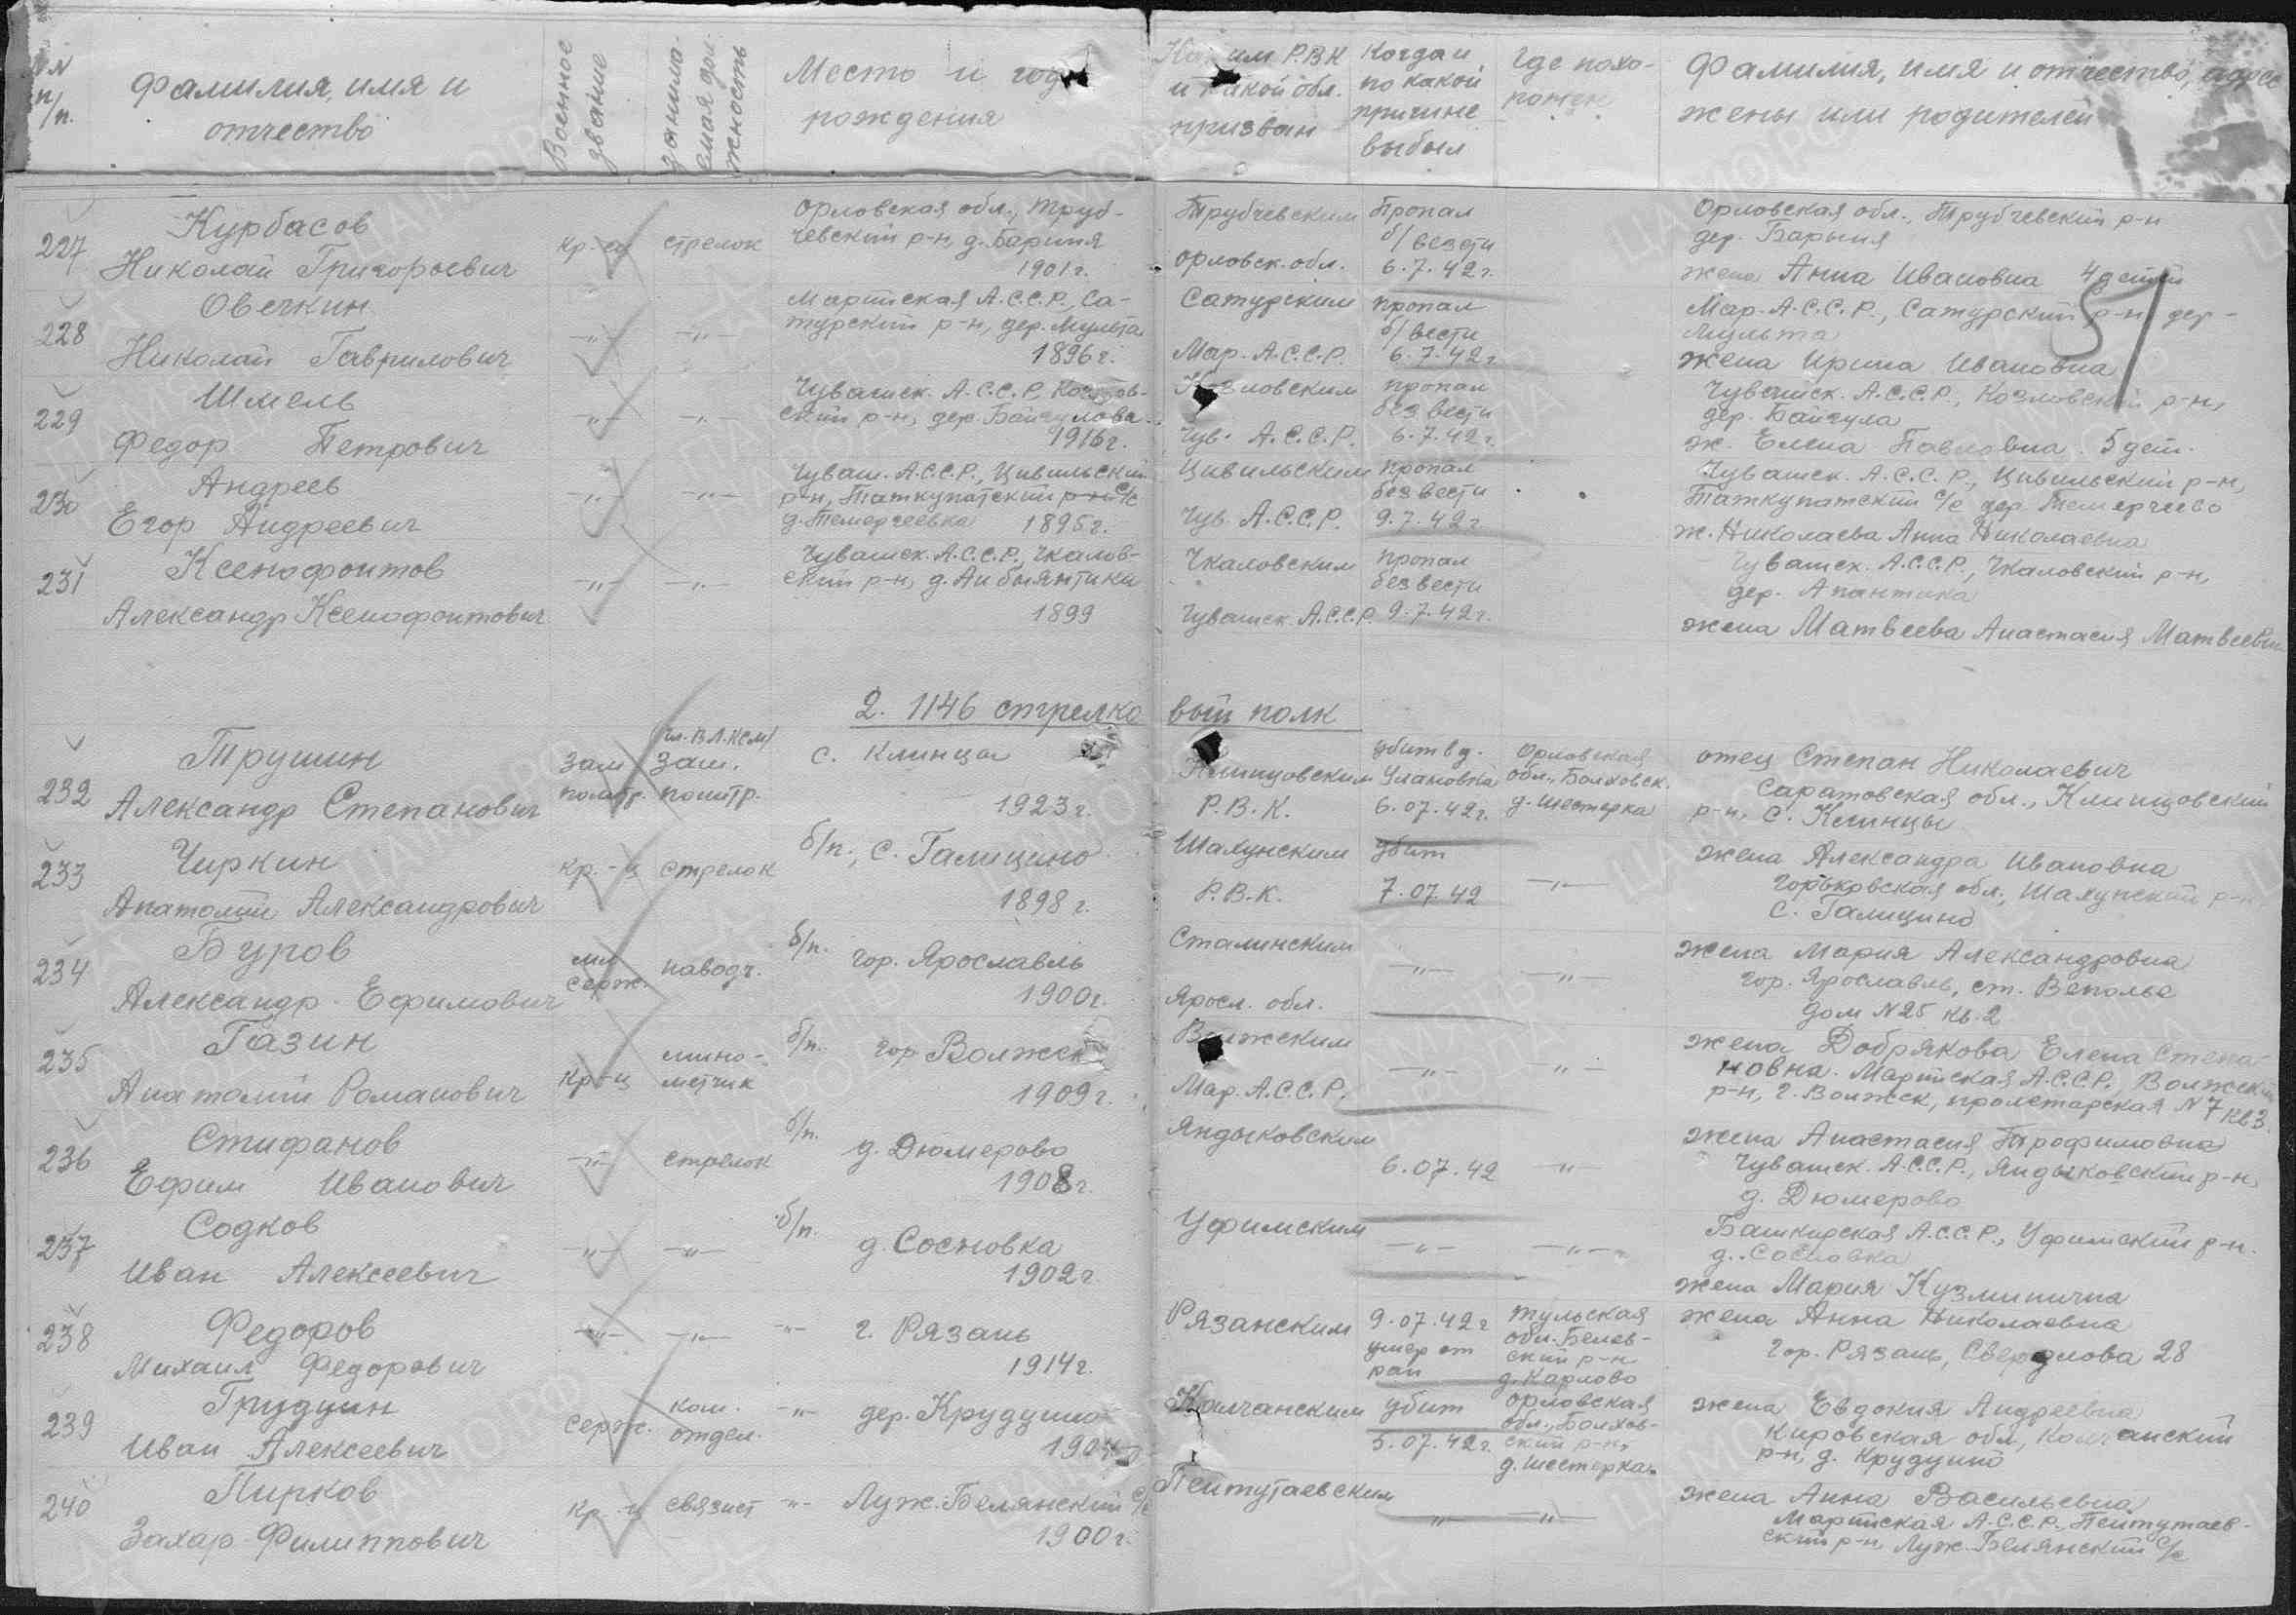 № п/п.
Фамилия, имя и отчество
Военное звание
занимаемая должность
Место и год рождения
Каким Р.В.К и какой обл. призван
Когда и по какой причине выбыл
Где похоронен
Фамилия, имя и отчество, адрес жены или родителей
51
227
Курбасов
Николай Григорьевич
кр-ец
стрелок
Орловская обл., Труб-
чевский р-н, д. Барыня
1901г.
Трубчевским
Орловск. обл.
Пропал
б/вести
6.7.42г.
Орловская обл., Трубчевский р-н
дер. Барыня
жена Анна Ивановна 4 детей
228
Овечкин
Николай Гаврилович
-"-
-"-
Марийская А.С.С.Р., Са-
турский р-н, дер. Мульта
1896г.
Сатурским
Мар. А.С.С.Р.
пропал
б/вести
6.7.42г.
Мар. А.С.С.Р., Сатурский р-н, дер-
Мульта
жена Ирина Ивановна
229
Шмель
Федор Петрович
-"-
-"-
Чувашск. А.С.С.Р, Козлов-
ский р-н, дер. Байгулова
1916г.
Козловским
Чув. А.С.С.Р.
пропал
без вести
6.7.42г.
Чувашск. А.С.С.Р., Козловский р-н,
дер. Байгула
ж. Елена Павловна. 5 дет.
230
Андреев
Егор Андреевич
-"-
-"-
Чуваш. А.С.С.Р., Цивильский
р-н, Таткупатский р-н с/с
д. Темерчеевка 1895г.
Цивильским
Чув. А.С.С.Р.
пропал
без вести
9.7.42г.
Чувашск. А.С.С.Р., Цивильский р-н,
Таткупатский с/с дер. Темерчеево
ж. Николаева Анна Николаевна
231
Ксенофонтов
Александр Ксенофонтович
-"-
-"-
Чувашск. А.С.С.Р., Чкалов-
ский р-н, д.
1899
Чкаловским
Чувашск. А.С.С.Р.
пропал
без вести
9.7.42г.
Чувашск. А.С.С.Р., Чкаловский р-н,
дер. Апантика
жена Матвеева Анастасия Матвеевна
2. 1146 стрелковый полк
232
Трушин
Александр Степанович
Зам
политр.
чл. ВЛКСМ/
Зам.
политр.
с. Клинцы
1923г.
Клинцовским
Р.В.К.
убит в д.
Улановка
6.07.42г.
Орловская
обл., Болховск.
д. Шестерка
отец Степан Николаевич
Саратовская обл., Клинцовский
р-н, с. Клинцы
233
Чиркин
Анатолий Александрович
Кр.-ц
стрелок
б/п., с. Галицино
1898г.
Шахунским
Р.В.К.
убит
7.07.42
-"-
жена Александра Ивановна
Горьковская обл., Шахунский р-н
с. Галицино
234
Буров
Александр Ефимович
мл
серж.
наводч.
б/п.
гор. Ярославль
1900г.
Сталинским
Яросл. обл.
-"-
-"-
жена Мария Александровна
гор. Ярославль, ст. Веполье
дом №25 кв.2
235
Газин
Анатолий Романович
Кр-ц
мино-
метчик
б/п.
гор. Волжск
1909г.
Волжским
Мар. А.С.С.Р.
-"-
-"-
жена Добрякова Елена Степа-
новна. Марийская А.С.С.Р., Волжский
р-н, г. Волжск, пролетарская №7 кв3.
236
Стифанов
Ефим Иванович
-"-
стрелок
б/п.
д. Дюмерово
1908г.
Яндыковским
6.07.42
-"-
жена Анастасия Трофимовна
Чувашск. А.С.С.Р., Яндыковский р-н,
д. Дюмерово
237
Содков
Иван Алексеевич
-"-
-"-
б/п.
д. Сосновка
1902г
Уфимским
-"-
-"-
Башкирская А.С.С.Р., Уфимский р-н.
д. Сосновка
жена Мария Кузминична
238
Федоров
Михаил Федорович
-"-
-"-
-"-
г. Рязань
1914г.
Рязанским
9.07.42г
умер от
ран
Тульская
обл. Белев-
ский р-н
д. Карлово
жена Анна Николаевна
гор. Рязань, Свердлова 28
239
Грудцин
Иван Алексеевич
Серж.
ком.
отдел.
-"-
дер. Крудуино
Калчанским
убит
5.07.42г.
Орловская
обл., Болхов-
ский р-н,
д. Шестерка.
жена Евдокия Андреевна
Кировская обл, Колчанский
р-н, д. Крудуино
240
Пирков
Захар Филиппович
Кр.-ц
связист
-"-
Луж. Белянский с/с
1900г.
Пентутаевским
-"-
-"-
жена Анна Васильевна
Марийская А.С.С.Р. Пентутаев-
ский р-н, Луж. Белянский с/с